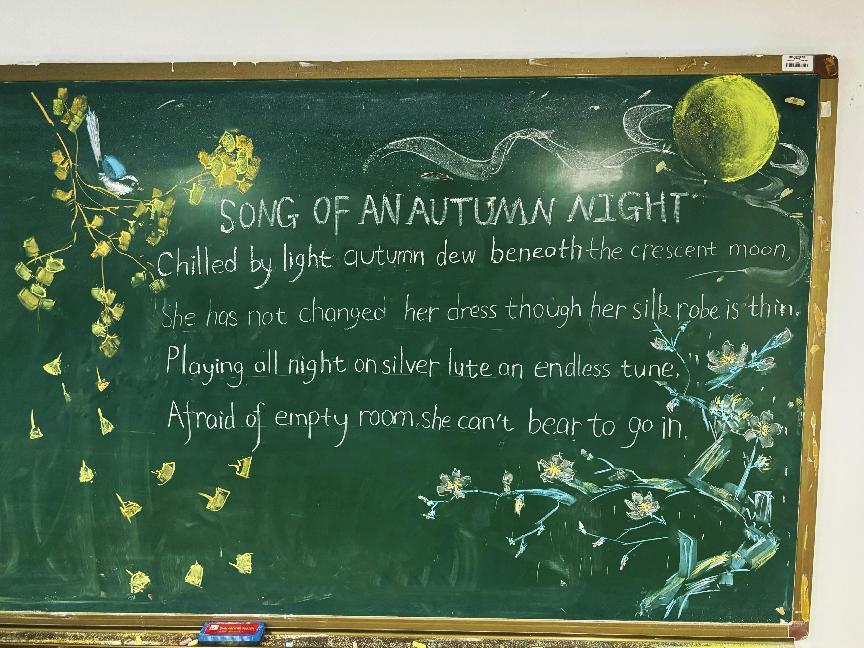 SONG OF AN AUTUMN NIGHT
Chilled by light autumn dew beneath the crescent moon,
She has not changed her dress though her silk robe is thin.
Playing all night on silver lute an endless tune,
Afraid of empty room, she can't bear to go in.